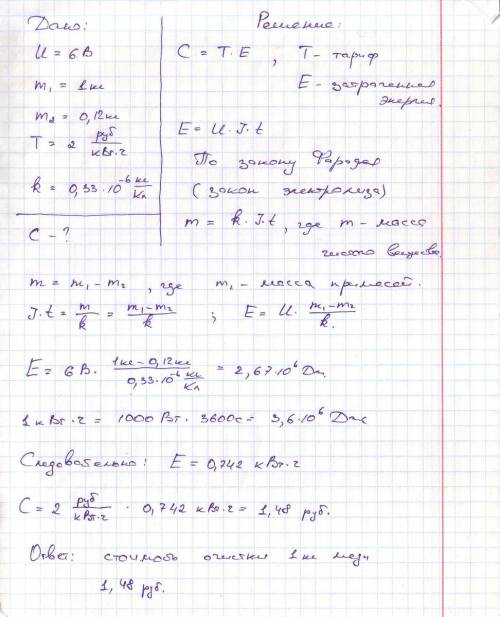 Дано:
U = 6 В
m₁ = 1 кг
m₂ = 0,12 кг
T = 2 руб/кВт·ч
k = 0,33·10⁻⁶ кг/Кл
C - ?
Решение:
C = T·E, T - тариф
E - затраченная
энергия.
E = U·J·t
По закону Фарадея
(закон электролиза)
m = k·J·t, где m - масса
чистого вещества.
m = m₁ - m₂, где m₁ - масса примесей.
J·t = m/k = (m₁-m₂)/k ; E = U· (m₁-m₂)/k.
E = 6 В· (1кг - 0,12кг)/(0,33·10⁻⁶ кг/Кл) = 2,67·10⁶ Дж
1 кВт·ч = 1000 Вт · 3600с = 3,6·10⁶ Дж
Следовательно: E = 0,742 кВт·ч
C = 2 руб/кВт·ч · 0,742 кВт·ч = 1,48 руб.
Ответ: стоимость очистки 1 кг меди
1,48 руб.